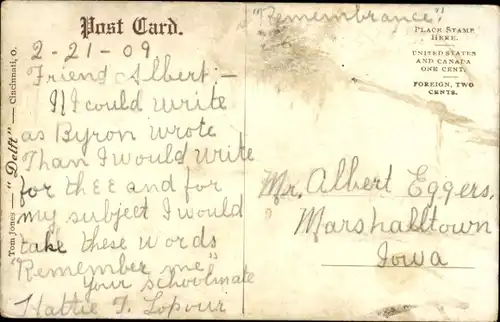 Post Card.
"Remembrance."
PLACE STAMP
HERE.
UNITED STATES
AND CANADA
ONE CENT.
FOREIGN, TWO
CENTS.
2-21-09
Friend Albert;-
If I could write
as Byron wrote
Than I would write
for thee and for
my subject I would
take these words
"Remember me"
your schoolmate
Hattie F. Lopour
Mr. Albert Eggers,
Marshalltown
Iowa
Tom Jones — "Delft" — Cincinnati, O.